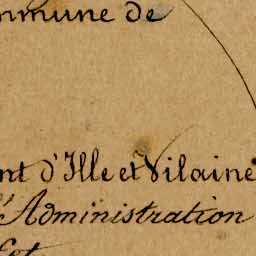 mmune de
nt d'Ille et Vilaine
l'Administration